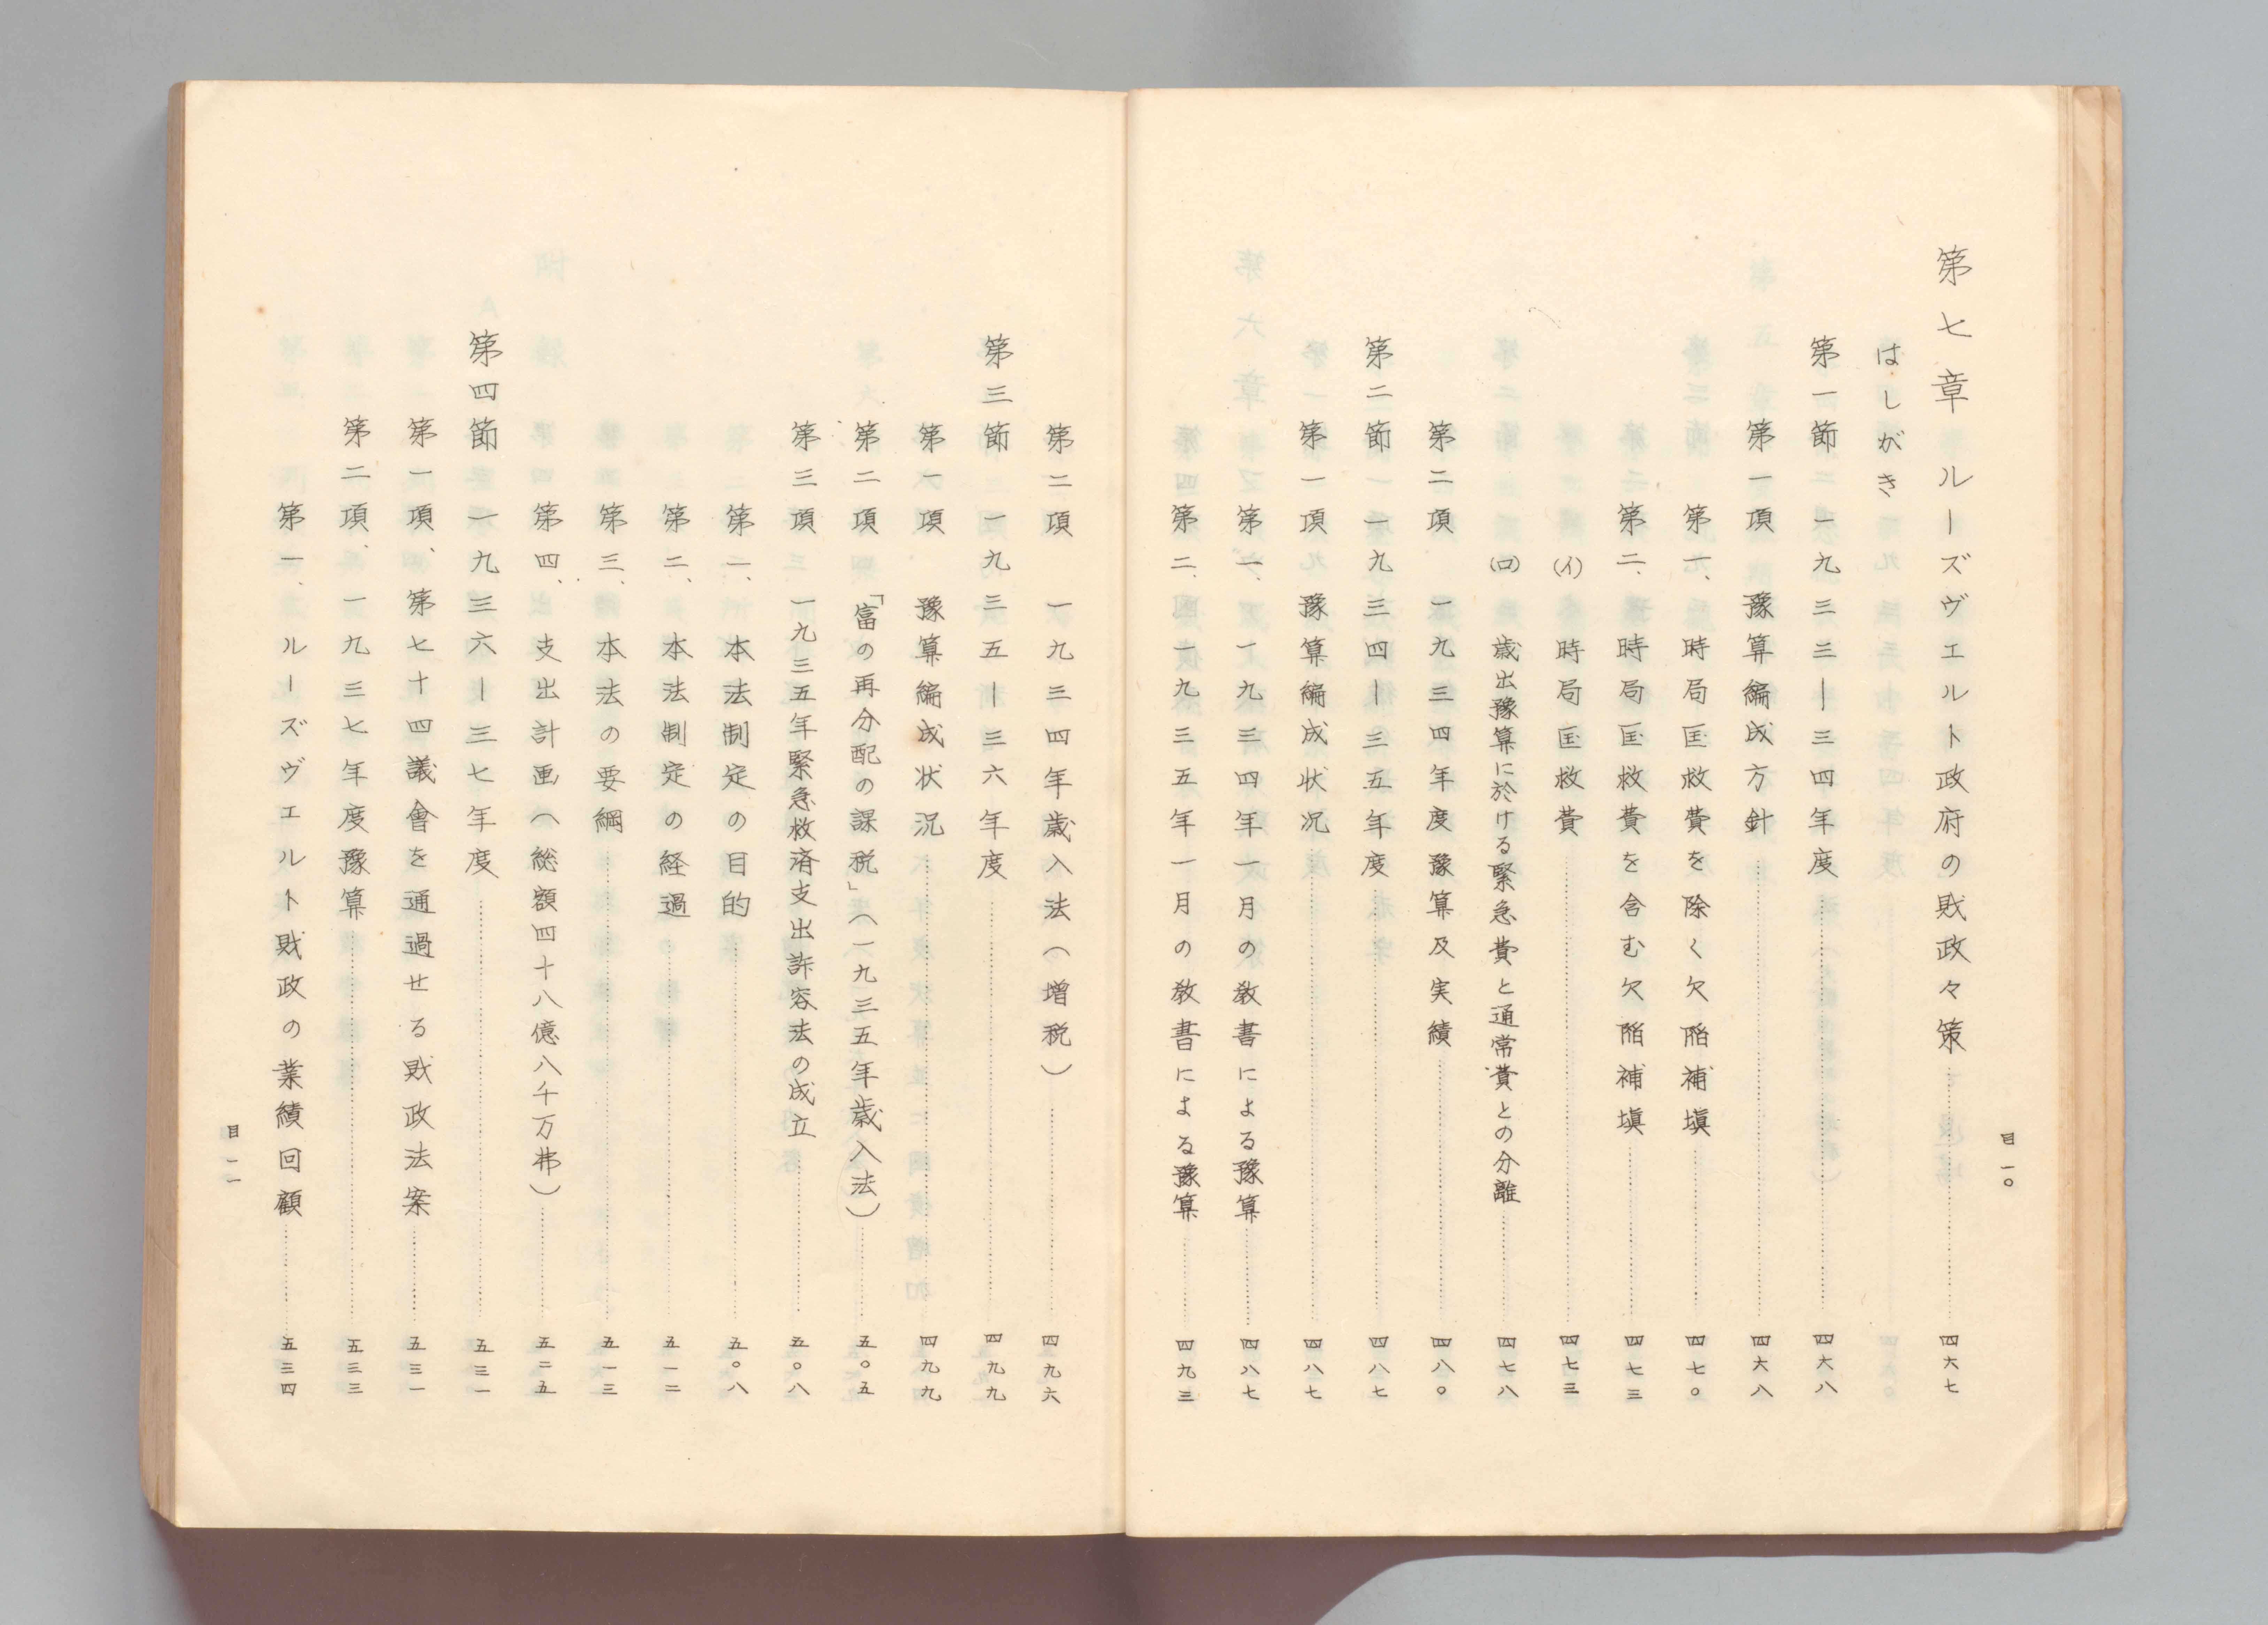 目一〇
第七章 ルーズヴェルト政府の財政々策……四六七
はしがき
第一節 一九三三―三四年度……四六八
第一項 豫算編成方針……四六八
第一、時局匡救費を除く欠陥補塡……四七〇
第二、時局匡救費を含む欠陥補塡……四七三
(イ) 時局匡救費……四七三
(ロ) 歳出豫算に於ける緊急費と通常費との分離……四七八
第二項 一九三四年度豫算及実績……四八〇
第二節 一九三四―三五年度……四八七
第一項 豫算編成状況……四八七
第一、一九三四年一月の教書による豫算……四八七
第二、一九三五年一月の教書による豫算……四九三
第二項 一九三四年歳入法(増税)……四九六
第三節 一九三五―三六年度……四九九
第一項 豫算編成状況……四九九
第二項 「富の再分配の課税」(一九三五年歳入法)……五〇五
第三項 一九三五年緊急救済支出許容法の成立……五〇八
第一、本法制定の目的……五〇八
第二、本法制定の経過……五一二
第三、本法の要綱……五一三
第四、支出計画(総額四十八億八千万弗)……五二五
第四節 一九三六―三七年度……五三一
第一項、第七十四議會を通過せる財政法案……五三一
第二項、一九三七年度豫算……五三三
第一、ルーズヴェルト財政の業績回顧……五三四
目一一